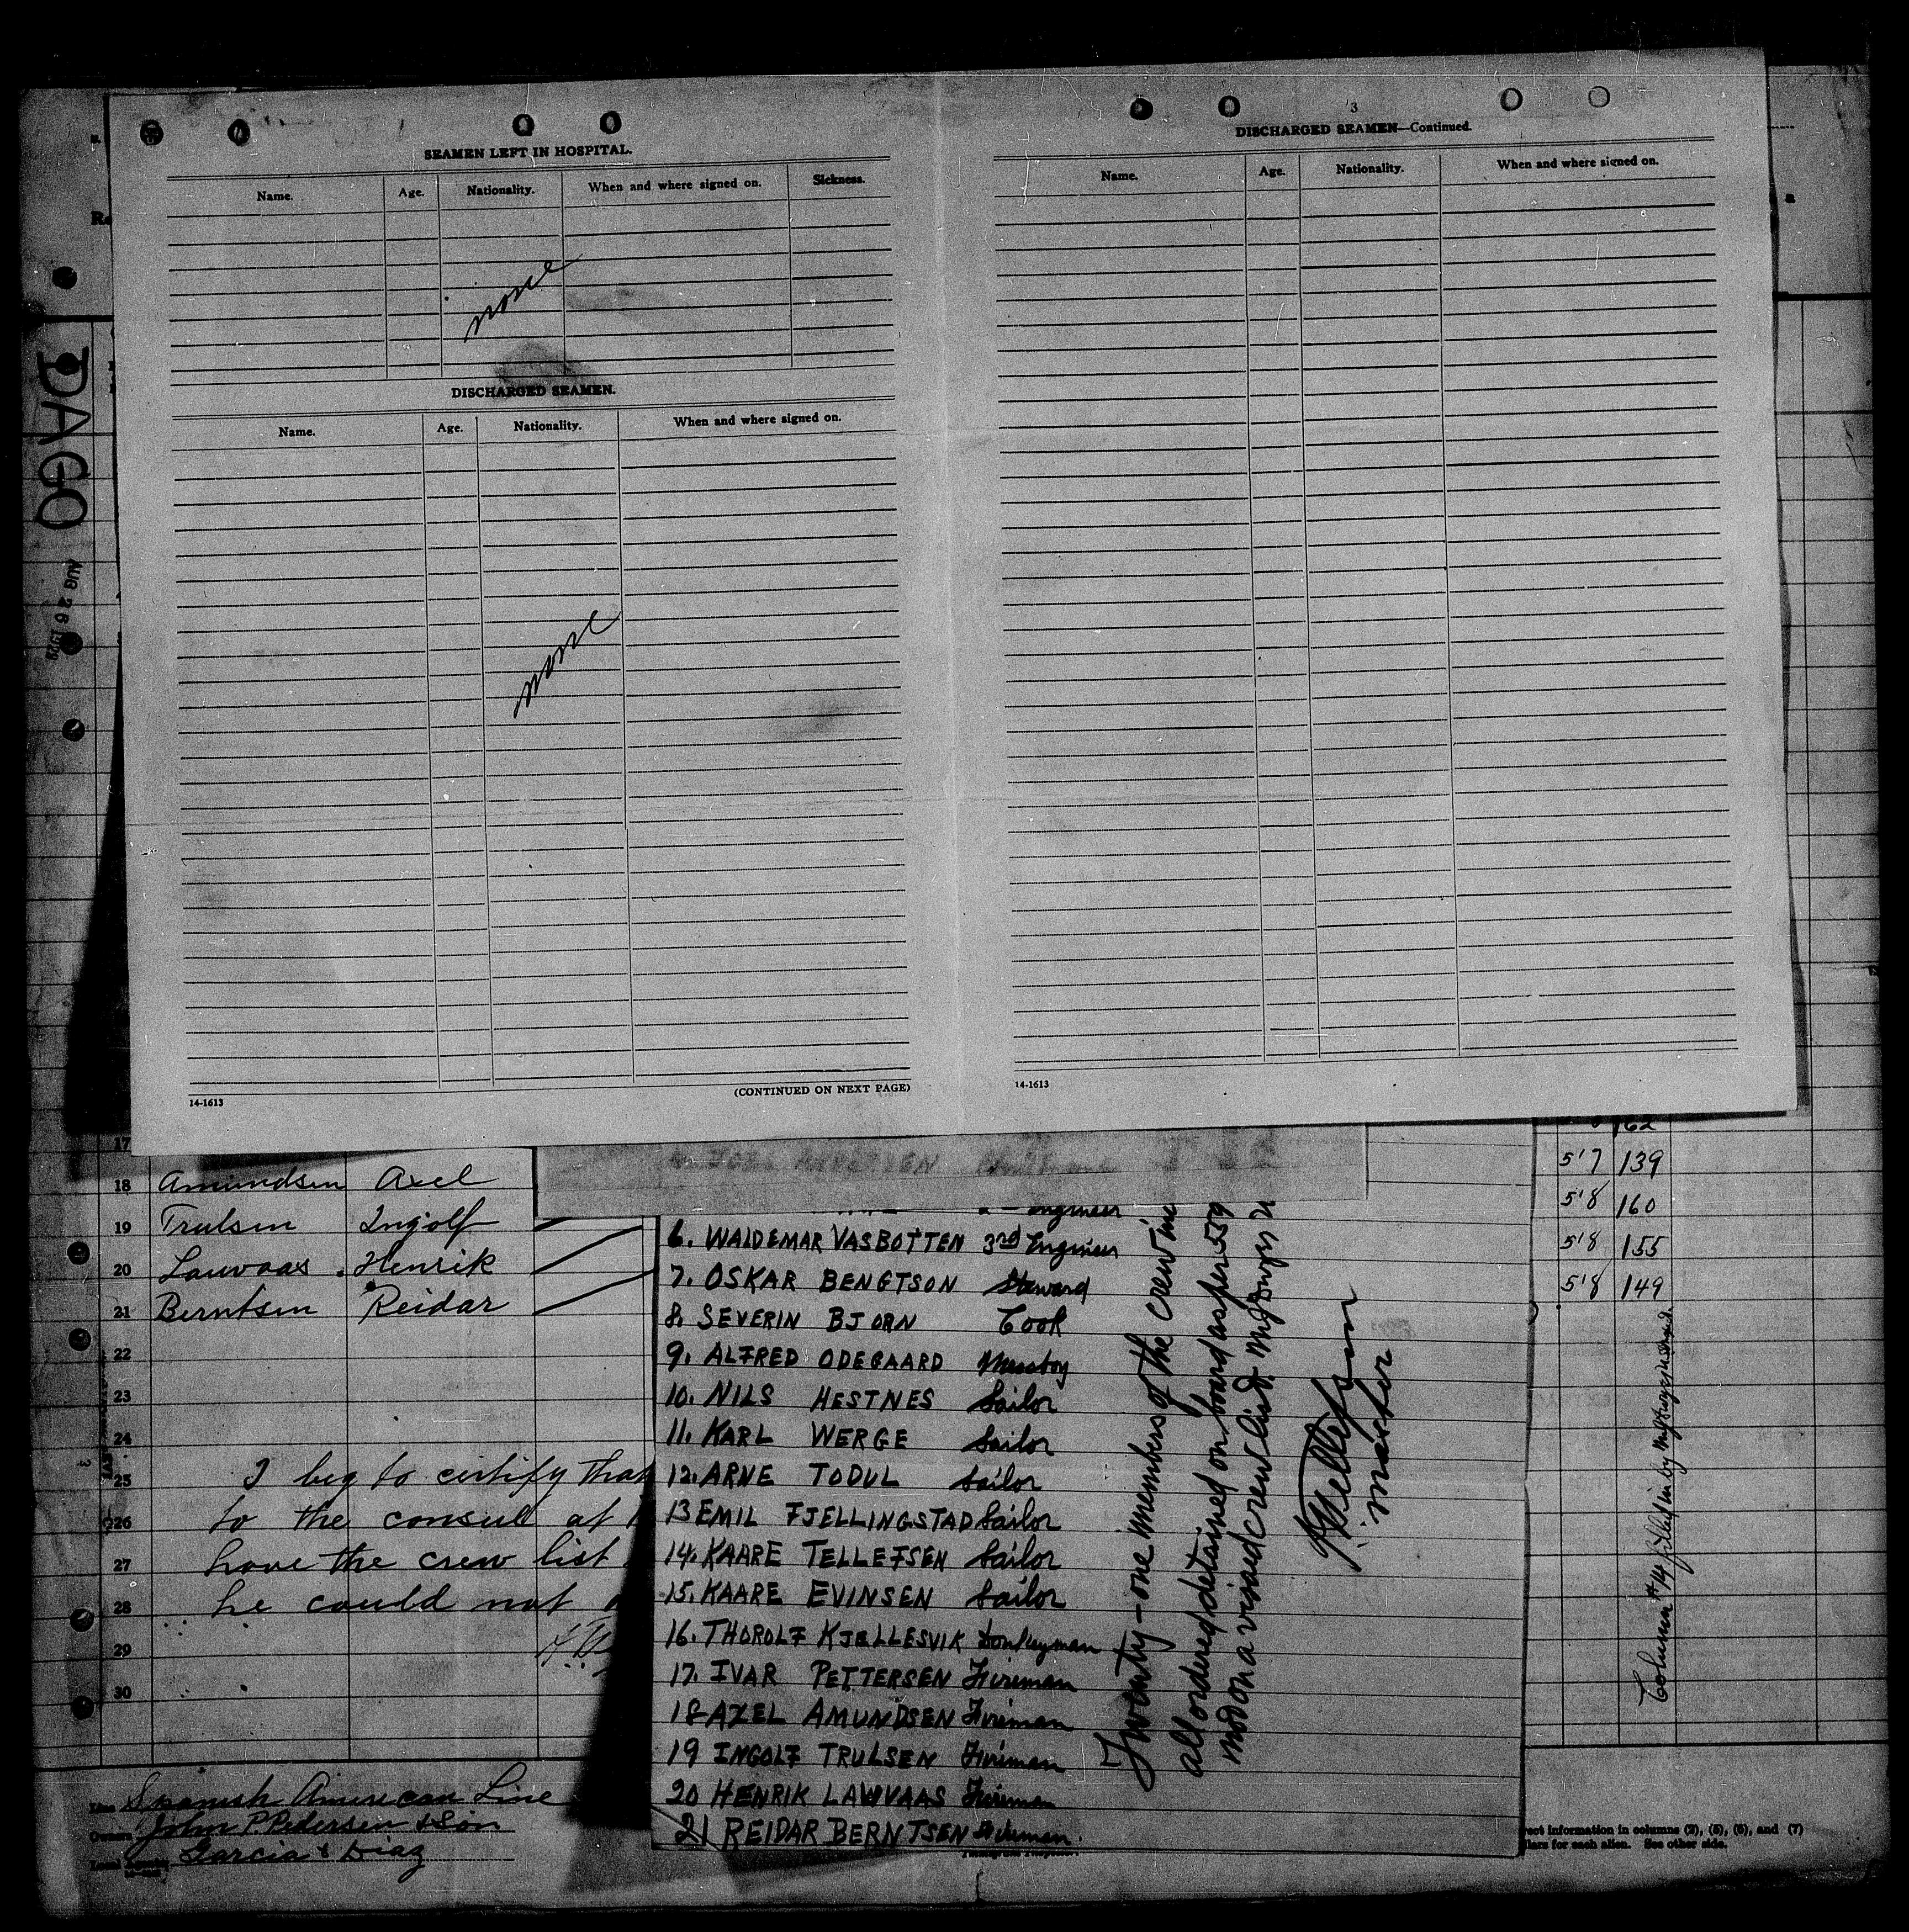 SEAMEN LEFT IN HOSPITAL.
Name. Age. Nationality. When and where signed on. Sickness.
none
DISCHARGED SEAMEN.
Name. Age. Nationality. When and where signed on.
none
(CONTINUED ON NEXT PAGE)
14-1613
3
DISCHARGED SEAMEN—Continued.
Name. Age. Nationality. When and where signed on.
14-1613
DAGO
AUG 26 1929
17
162
18 Amundsen Axel 5'7 139
19 Trulsen Ingolf 5'8 160
20 Lauvaas Henrik 5'8 155
21 Berntsen Reidar 5'8 149
22
23
24
25 I beg to certify that
26 to the consul at
27 have the crew list
28 he could not
29
30
Engineer
6. WALDEMAR VASBOTTEN 3rd Engineer
7. OSKAR BENGTSON Steward
8. SEVERIN BJORN Cook
9. ALFRED ODEGAARD Messboy
10. NILS HESTNES Sailor
11. KARL WERGE Sailor
12. ARNE TODUL Sailor
13 EMIL FJELLINGSTAD Sailor
14. KAARE TELLEFSEN Sailor
15. KAARE EVINSEN Sailor
16. THOROLF KJELLESVIK Donkeyman
17. IVAR PETTERSEN Fireman
18 AXEL AMUNDSEN Fireman
19 INGOLF TRULSEN Fireman
20 HENRIK LAWVAAS Fireman
21 REIDAR BERNTSEN Fireman.
Twenty-one members of the crew
all ordered detained on board as per 559
not on a visaed crew list.
master
Column #14 filled in by
Line Spanish American Line
Owners John P Pedersen & Son
Local Agents Garcia & Diaz
rect information in columns (2), (5), (6), and (7)
llars for each alien. See other side.